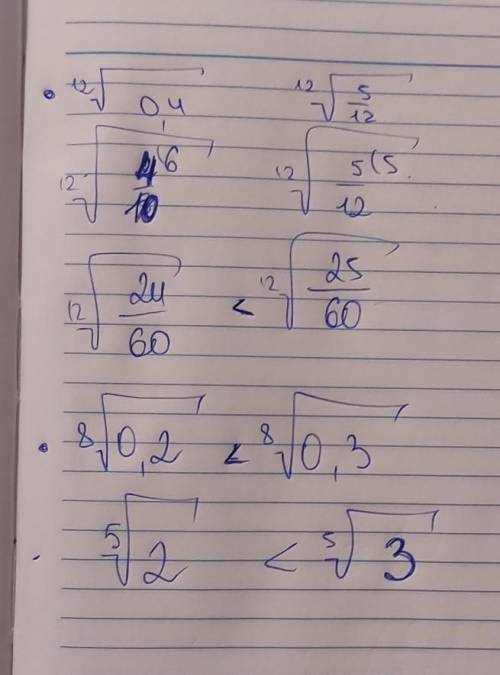 • ¹²√0,4 ¹²√(5/12)
¹²√(4⁽⁶/10) ¹²√(5⁽⁵/12)
¹²√(24/60) < ¹²√(25/60)
• ⁸√0,2 < ⁸√0,3
⁵√2 < ⁵√3